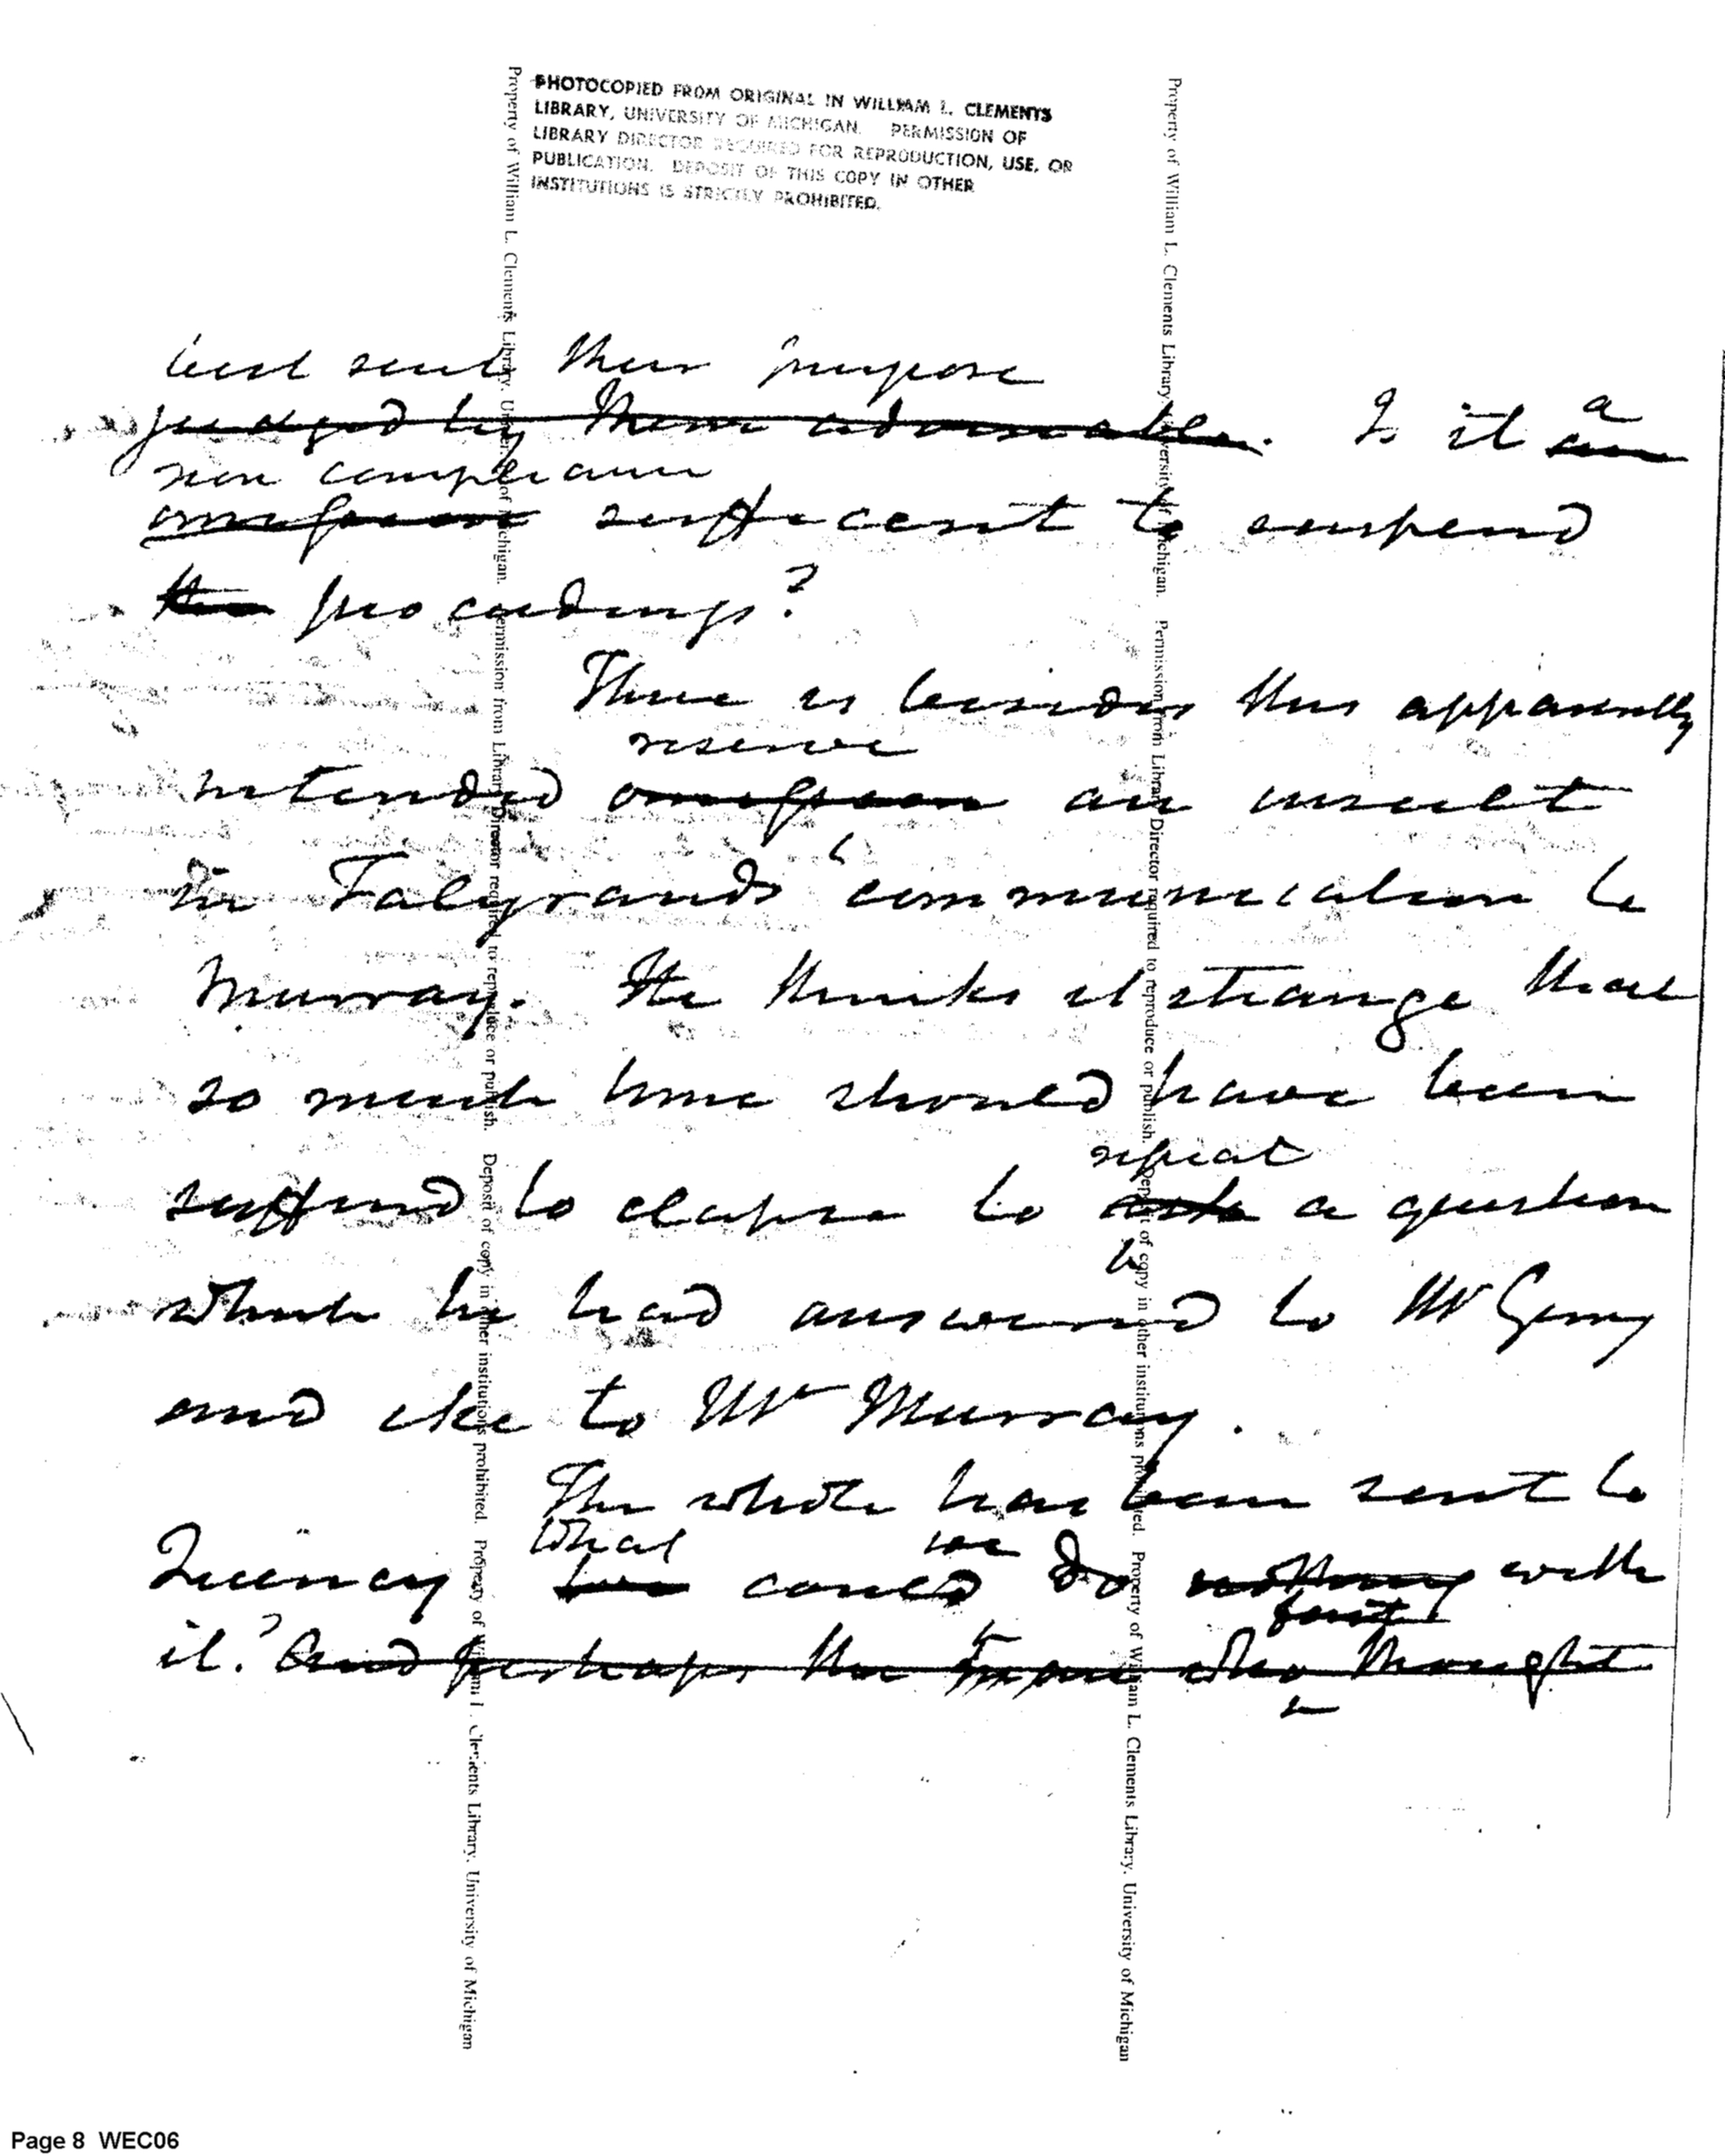 PHOTOCOPIED FROM ORIGINAL IN WILLIAM L. CLEMENTS
LIBRARY, UNIVERSITY OF MICHIGAN. PERMISSION OF
LIBRARY DIRECTOR REQUIRED FOR REPRODUCTION, USE, OR
PUBLICATION. DEPOSIT OF THIS COPY IN OTHER
INSTITUTIONS IS STRICTLY PROHIBITED.
best suit their purpose
judged by them adviseable. Is it a
an
non compliance
omission sufficient to suspend
the proceedings?
There is besides this apparently
reserve
intended omission an insult
in Talyrands communication to
Murray. He thinks it strange that
so much time should have been
repeat
suffered to elapse to ask a question
which he had answered to Mr Gerry
and eke to Mr Murray.
The whole has been sent to
what we
Quincy could do nothing with
first
it? And perhaps the man who thought
Property of William L. Clements Library, University of Michigan. Permission from Library Director required to reproduce or publish. Deposit of copy in other institutions prohibited. Property of William L. Clements Library, University of Michigan
Property of William L. Clements Library, University of Michigan. Permission from Library Director required to reproduce or publish. Deposit of copy in other institutions prohibited. Property of William L. Clements Library, University of Michigan
Page 8 WEC06